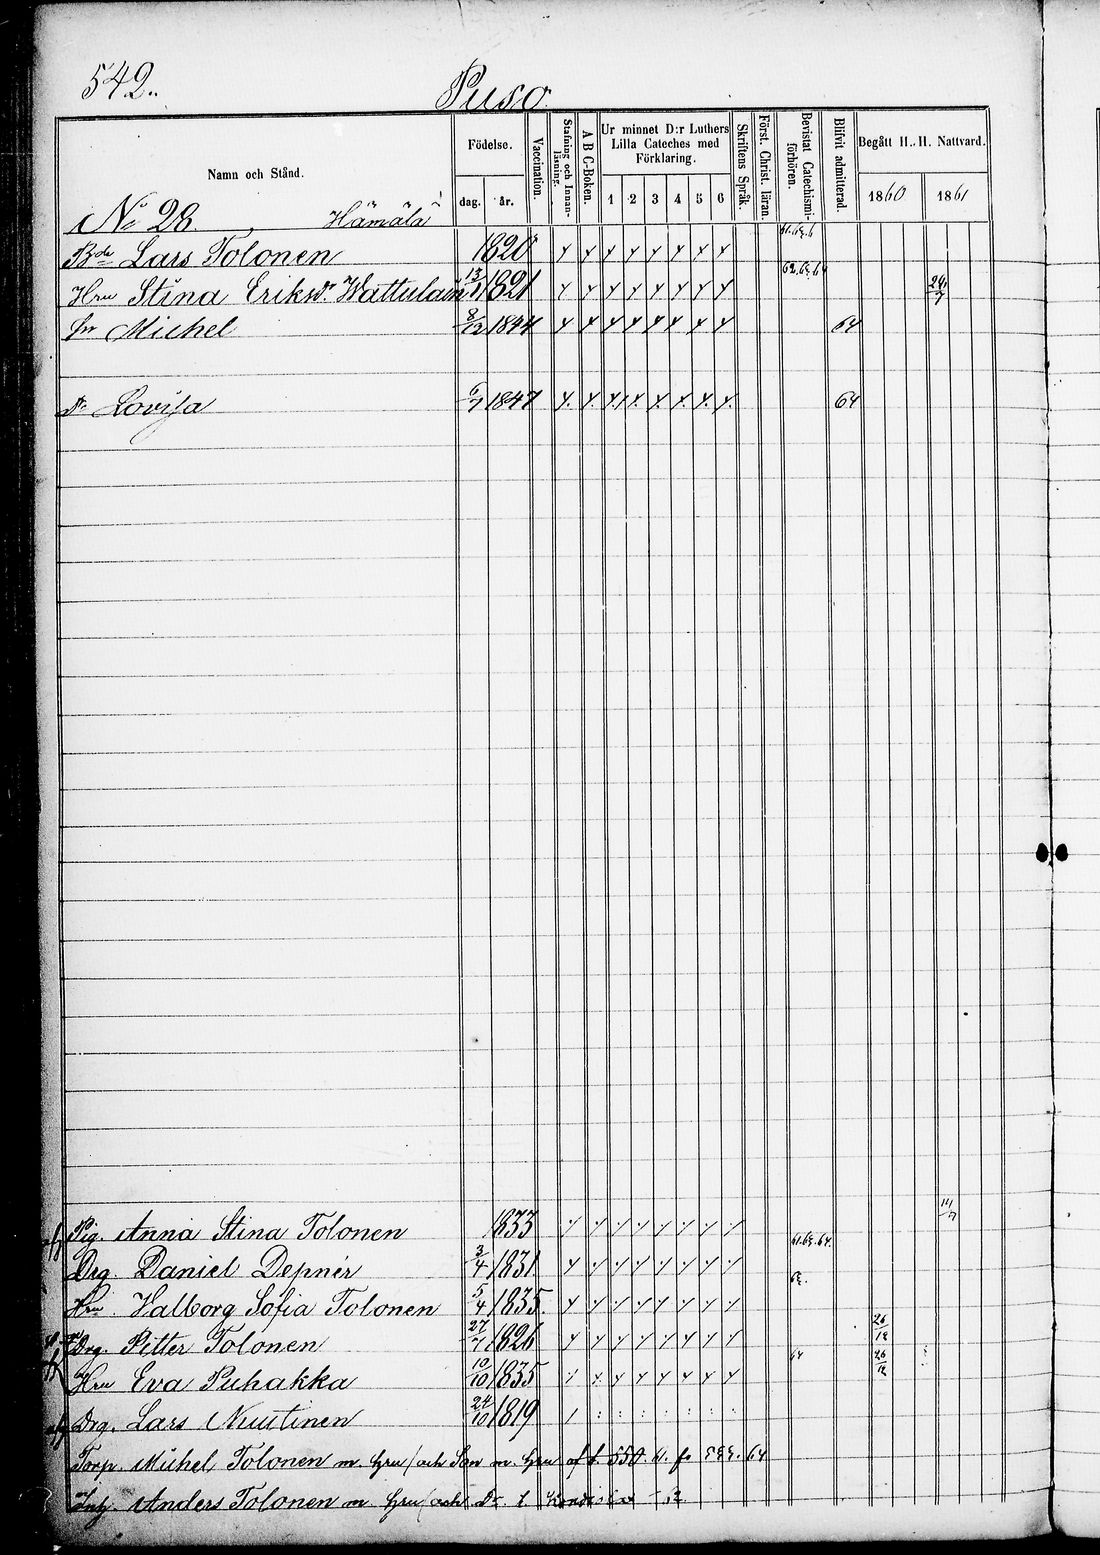 542.
Puso
Namn och Stånd.
Födelse.
dag.
år.
Vaccination.
Stafning och Innan-läsning.
A B C-Boken.
Ur minnet D:r Luthers
Lilla Cateches med
Förklaring.
1 2 3 4 5 6
Skriftens Språk.
Först. Christ. läran.
Bevistat Catechismi-förhören.
Blifvit admitterad.
Begått H. H. Nattvard.
1860 1861
No 28. Hämälä
Bde Lars Tolonen 1820 61.63.6
Hru Stina Eriksdr Wattulain 13 1821 62.63.64 24/7
Sn Michel 8/12 1844 64
Dr Lovisa 6/7 1847 64
Pig. Anna Stina Tolonen 1833 14/7
Drg. Daniel Depnér 3/4 1831 61.63.64.
Hru Valborg Sofia Tolonen 5/4 1835 63.
Drg. Petter Tolonen 27/7 1826 26/12
Hru Eva Puhakka 10/10 1835 64 26/12
Drg. Lars Nuutinen 24/10 1819
Torp. Michel Tolonen m. hru och Son m. hru af f. 550. 64
Anders Tolonen m hru och Dr